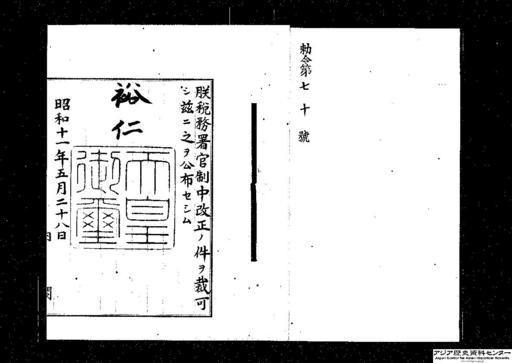 勅令第七十號
朕稅務署官制中改正ノ件ヲ裁可
シ茲ニ之ヲ公布セシム
裕仁
天皇御璽
昭和十一年五月二十八日
アジア歴史資料センター
Japan Center for Asian Historical Records